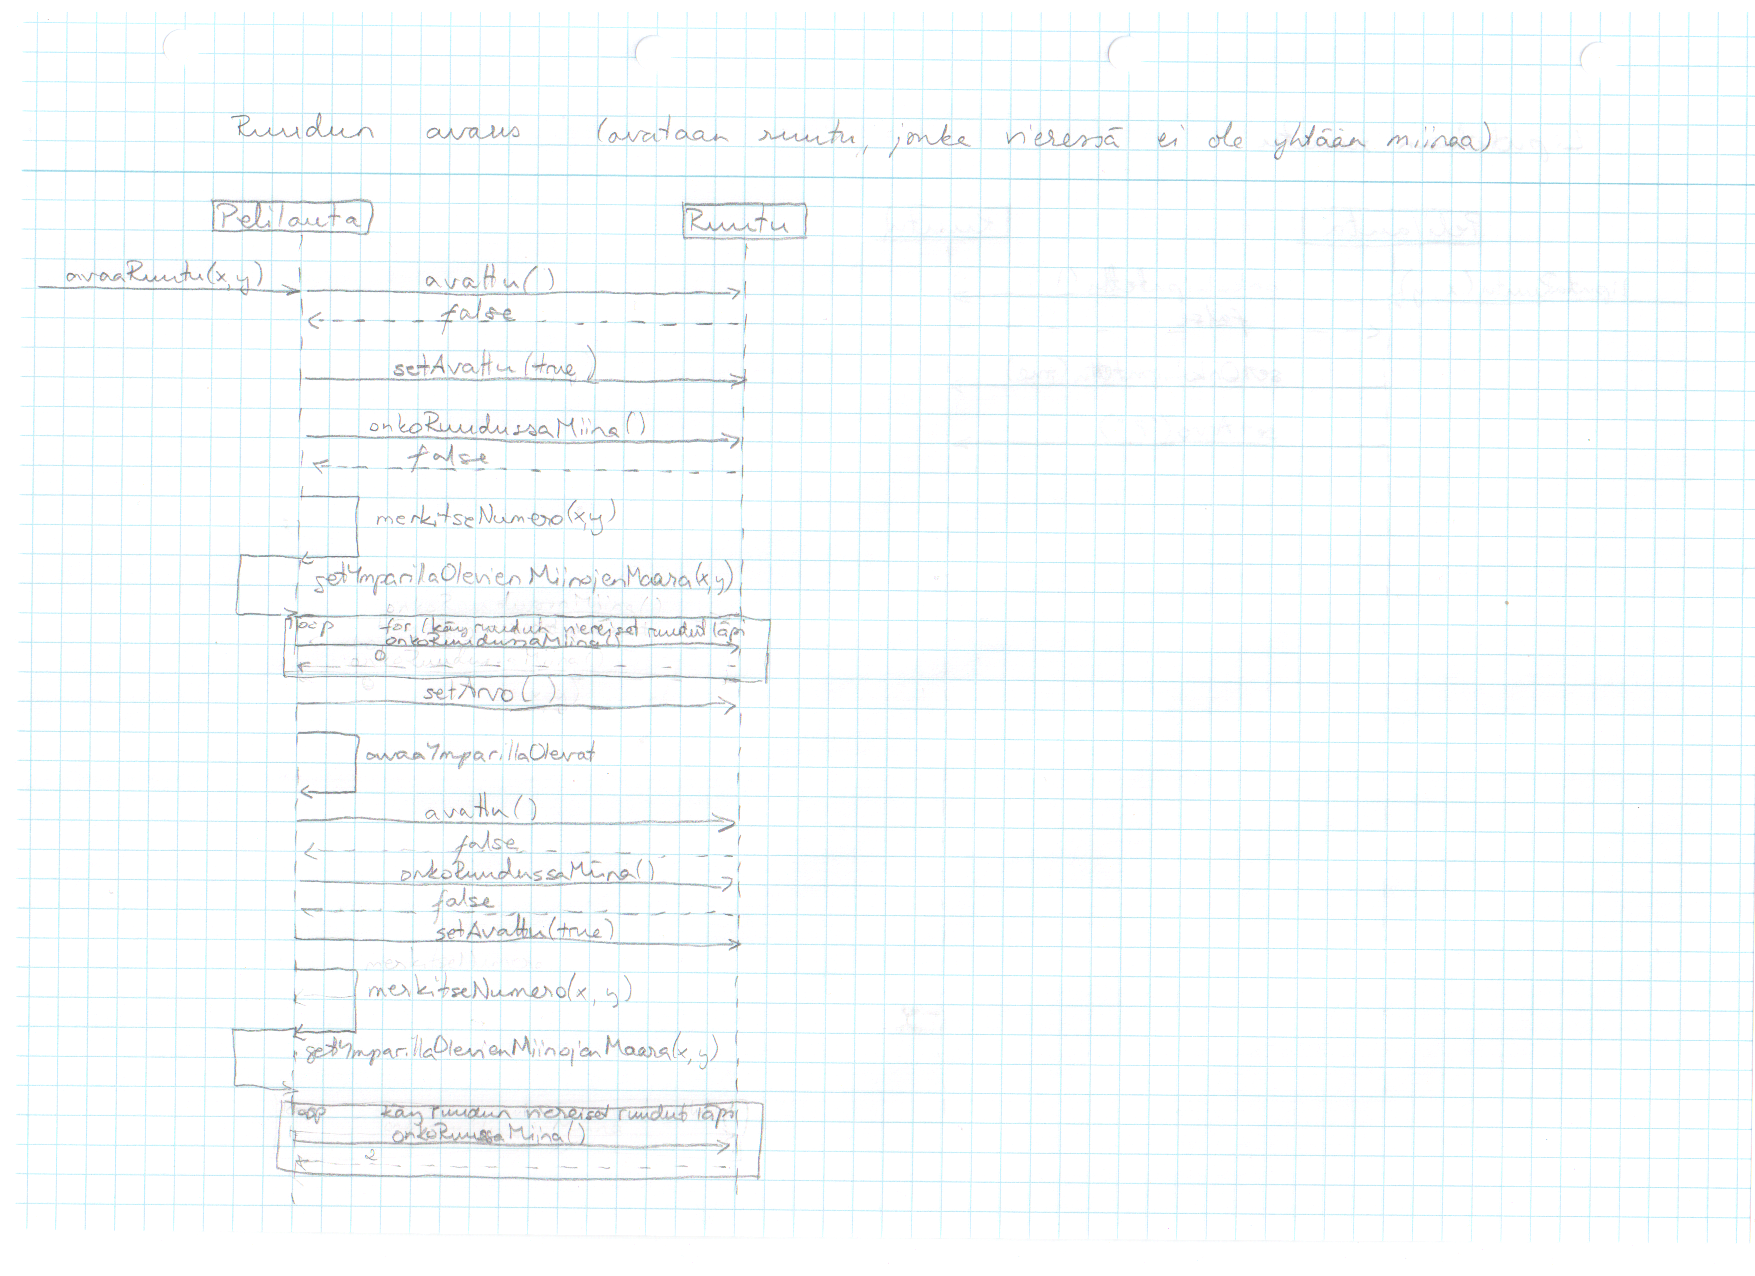 Ruudun avaus (avataan ruutu, jonka vieressä ei ole yhtään miinaa)
Pelilauta Ruutu
avaaRuutu(x,y) avattu()
false
setAvattu(true)
onkoRuudussaMiina()
false
merkitseNumero(x,y)
getYmparillaOlevienMiinojenMaara(x,y)
loop for (käy ruudun viereiset ruudut läpi
onkoRuudussaMiina()
0
setArvo()
avaaYmparillaOlevat
avattu()
false
onkoRuudussaMiina()
false
setAvattu(true)
merkitseNumero(x, y)
getYmparillaOlevienMiinojenMaara(x, y)
loop käy ruudun viereiset ruudut läpi
onkoRuussaMiina()
2